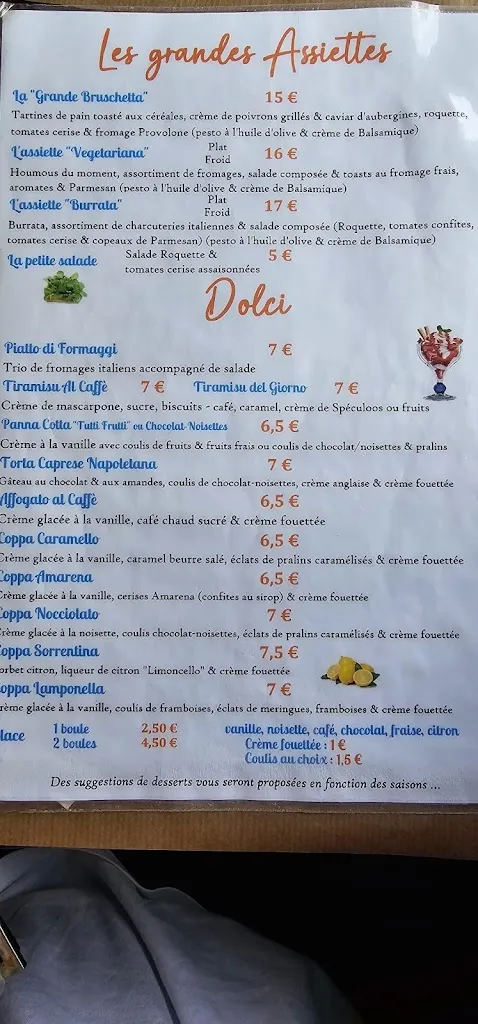 Les grandes Assiettes
La "Grande Bruschetta" 15 €
Tartines de pain toasté aux céréales, crème de poivrons grillés & caviar d'aubergines, roquette,
tomates cerise & fromage Provolone (pesto à l'huile d'olive & crème de Balsamique)
L'assiette "Vegetariana" Plat Froid 16 €
Houmous du moment, assortiment de fromages, salade composée & toasts au fromage frais,
aromates & Parmesan (pesto à l'huile d'olive & crème de Balsamique)
L'assiette "Burrata" Plat Froid 17 €
Burrata, assortiment de charcuteries italiennes & salade composée (Roquette, tomates confites,
tomates cerise & copeaux de Parmesan) (pesto à l'huile d'olive & crème de Balsamique)
La petite salade Salade Roquette & 5 €
tomates cerise assaisonnées
Dolci
Piatto di Formaggi 7 €
Trio de fromages italiens accompagné de salade
Tiramisu Al Caffè 7 € Tiramisu del Giorno 7 €
Crème de mascarpone, sucre, biscuits - café, caramel, crème de Spéculoos ou fruits
Panna Cotta "Tutti Frutti" ou Chocolat-Noisettes 6,5 €
Crème à la vanille avec coulis de fruits & fruits frais ou coulis de chocolat/noisettes & pralins
Torta Caprese Napoletana 7 €
Gâteau au chocolat & aux amandes, coulis de chocolat-noisettes, crème anglaise & crème fouettée
Affogato al Caffè 6,5 €
Crème glacée à la vanille, café chaud sucré & crème fouettée
Coppa Caramello 6,5 €
Crème glacée à la vanille, caramel beurre salé, éclats de pralins caramélisés & crème fouettée
Coppa Amarena 6,5 €
Crème glacée à la vanille, cerises Amarena (confites au sirop) & crème fouettée
Coppa Nocciolato 7 €
Crème glacée à la noisette, coulis chocolat-noisettes, éclats de pralins caramélisés & crème fouettée
Coppa Sorrentina 7,5 €
orbet citron, liqueur de citron "Limoncello" & crème fouettée
oppa Lamponella 7 €
rème glacée à la vanille, coulis de framboises, éclats de meringues, framboises & crème fouettée
lace 1 boule 2,50 € vanille, noisette, café, chocolat, fraise, citron
2 boules 4,50 € Crème fouettée : 1 €
Coulis au choix : 1,5 €
Des suggestions de desserts vous seront proposées en fonction des saisons ...